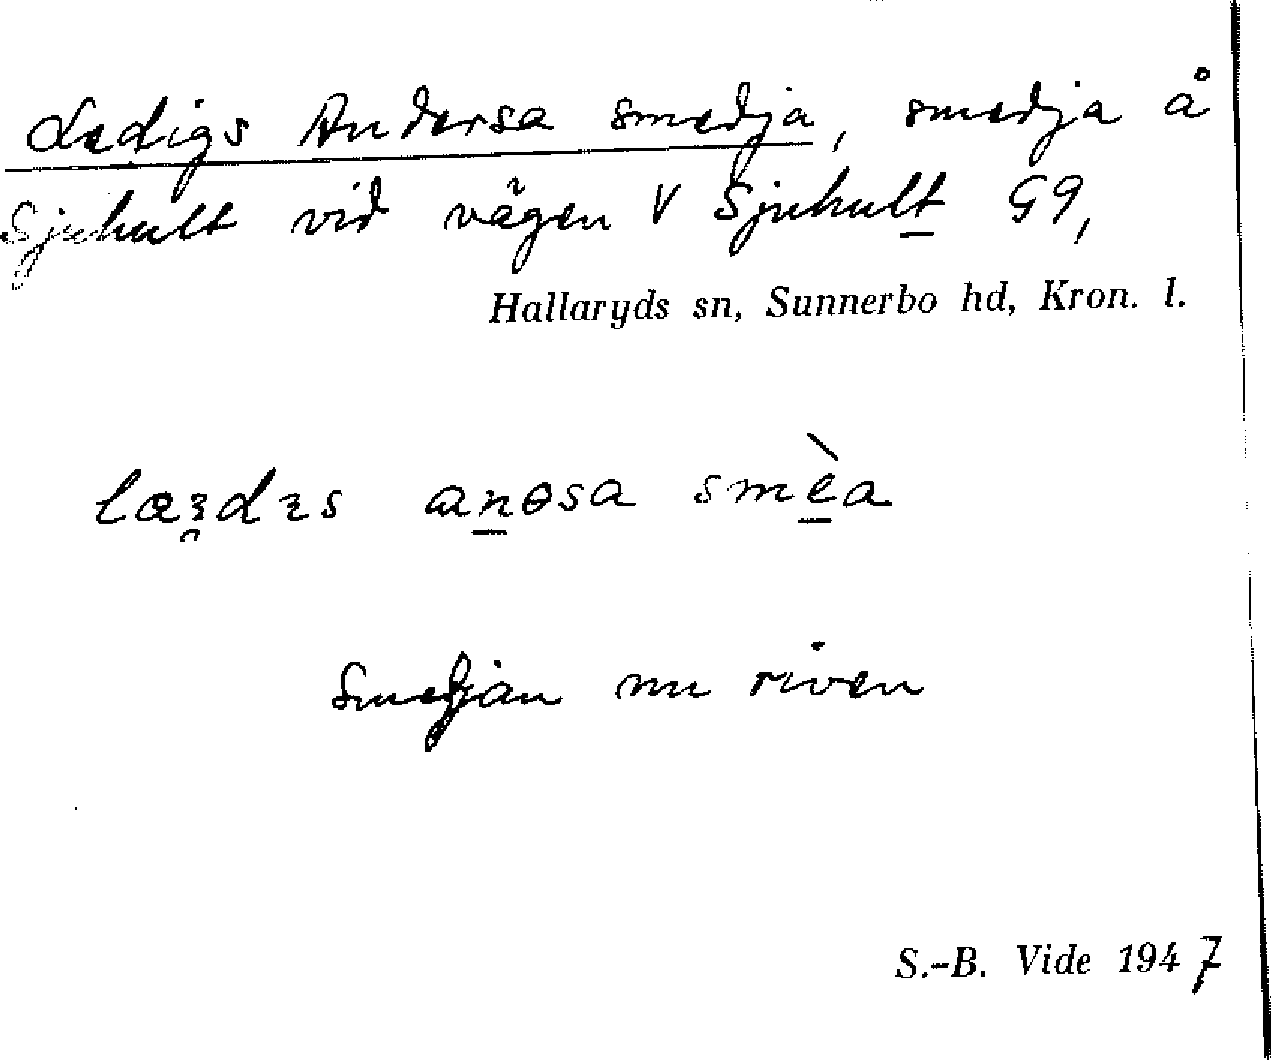 Ledigs Andersa smedja, smedja å
Sjuhult vid vägen V Sjuhult G9,
Hallaryds sn, Sunnerbo hd, Kron. l.
smèa
Smedjan nu riven
S.-B. Vide 1947